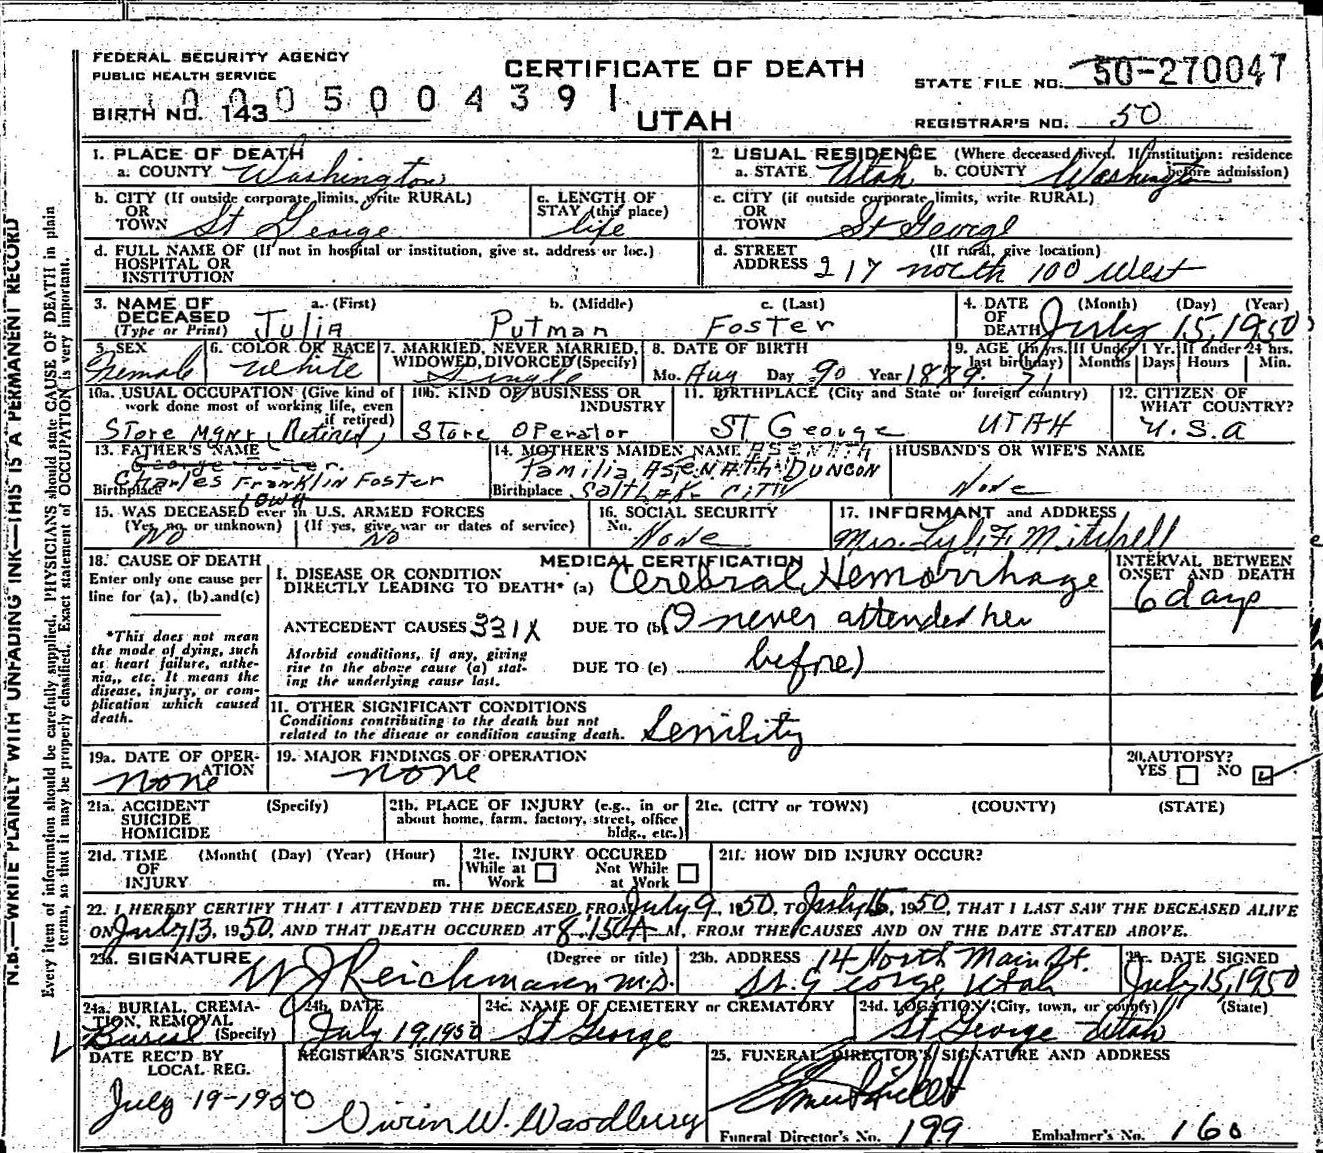 FEDERAL SECURITY AGENCY
PUBLIC HEALTH SERVICE
CERTIFICATE OF DEATH
STATE FILE NO. 50-270047
10005004391
BIRTH NO. 143
UTAH
REGISTRAR'S NO. 50
1. PLACE OF DEATH
a. COUNTY Washington
2. USUAL RESIDENCE (Where deceased lived. If institution: residence before admission)
a. STATE Utah b. COUNTY Washington
b. CITY (If outside corporate limits, write RURAL)
OR
TOWN St George
c. LENGTH OF
STAY (this place)
life
c. CITY (if outside corporate limits, write RURAL)
OR
TOWN St George
d. FULL NAME OF (If not in hospital or institution, give st. address or loc.)
HOSPITAL OR
INSTITUTION
d. STREET (If rural, give location)
ADDRESS 217 north 100 West
3. NAME OF DECEASED
(Type or Print)
a. (First) b. (Middle) c. (Last)
Julia Putman Foster
4. DATE OF DEATH (Month) (Day) (Year)
July 15, 1950
5. SEX
Female
6. COLOR OR RACE
White
7. MARRIED, NEVER MARRIED,
WIDOWED, DIVORCED (Specify)
Single
8. DATE OF BIRTH
Mo. Aug Day Year 1879
9. AGE (In yrs. last birthday) If Under 1 Yr. If under 24 hrs.
Months Days Hours Min.
10a. USUAL OCCUPATION (Give kind of
work done most of working life, even
if retired)
Store Mgnr (Retired)
10b. KIND OF BUSINESS OR
INDUSTRY
Store Operator
11. BIRTHPLACE (City and State or foreign country)
ST George UTAH
12. CITIZEN OF
WHAT COUNTRY?
U.S.A
13. FATHER'S NAME
George Foster.
Charles Franklin Foster
Birthplace IOWA
14. MOTHER'S MAIDEN NAME ASENATH
Familia ASENATH DUNCON
Birthplace Salt Lake CITY
HUSBAND'S OR WIFE'S NAME
None
15. WAS DECEASED ever in U.S. ARMED FORCES
(Yes, no or unknown) (If yes, give war or dates of service)
No No
16. SOCIAL SECURITY
No. None
17. INFORMANT and ADDRESS
Mrs. F. Mitchell
18. CAUSE OF DEATH
Enter only one cause per
line for (a), (b), and (c)
*This does not mean
the mode of dying, such
as heart failure, asthe-
nia,, etc. It means the
disease, injury, or com-
plication which caused
death.
MEDICAL CERTIFICATION
I. DISEASE OR CONDITION
DIRECTLY LEADING TO DEATH* (a) Cerebral Hemorrhage
INTERVAL BETWEEN
ONSET AND DEATH
6 days
ANTECEDENT CAUSES 331X DUE TO (b) (I never attended her
Morbid conditions, if any, giving
rise to the above cause (a) stat-
ing the underlying cause last.
DUE TO (c) before)
II. OTHER SIGNIFICANT CONDITIONS
Conditions contributing to the death but not
related to the disease or condition causing death.
Senility
19a. DATE OF OPER-
ATION
none
19. MAJOR FINDINGS OF OPERATION
none
20. AUTOPSY?
YES NO
21a. ACCIDENT (Specify)
SUICIDE
HOMICIDE
21b. PLACE OF INJURY (e.g., in or
about home, farm, factory, street, office
bldg., etc.)
21c. (CITY or TOWN) (COUNTY) (STATE)
21d. TIME (Month( (Day) (Year) (Hour)
OF
INJURY m.
21e. INJURY OCCURED
While at Work Not While at Work
21f. HOW DID INJURY OCCUR?
22. I HEREBY CERTIFY THAT I ATTENDED THE DECEASED FROM July 9, 1950, TO July 15, 1950, THAT I LAST SAW THE DECEASED ALIVE
ON July 13, 1950, AND THAT DEATH OCCURED AT 8:150A M., FROM THE CAUSES AND ON THE DATE STATED ABOVE.
23a. SIGNATURE (Degree or title)
W J Reichmann M.D.
23b. ADDRESS 14 North Main St.
St. George, Utah
DATE SIGNED
July 15, 1950
24a. BURIAL, CREMA-
TION, REMOVAL
(Specify)
Burial
24b. DATE
July 19, 1950
24c. NAME OF CEMETERY or CREMATORY
St George
24d. LOCATION (City, town, or county) (State)
St George Utah
DATE REC'D BY
LOCAL REG.
July 19-1950
REGISTRAR'S SIGNATURE
Vivien W. Woodbury
25. FUNERAL DIRECTOR'S SIGNATURE AND ADDRESS
Funeral Director's No. 199 Embalmer's No. 160
N.B.—WRITE PLAINLY WITH UNFADING INK—THIS IS A PERMANENT RECORD
Every item of information should be carefully supplied. PHYSICIANS should state CAUSE OF DEATH in plain
terms, so that it may be properly classified. Exact statement of OCCUPATION is very important.